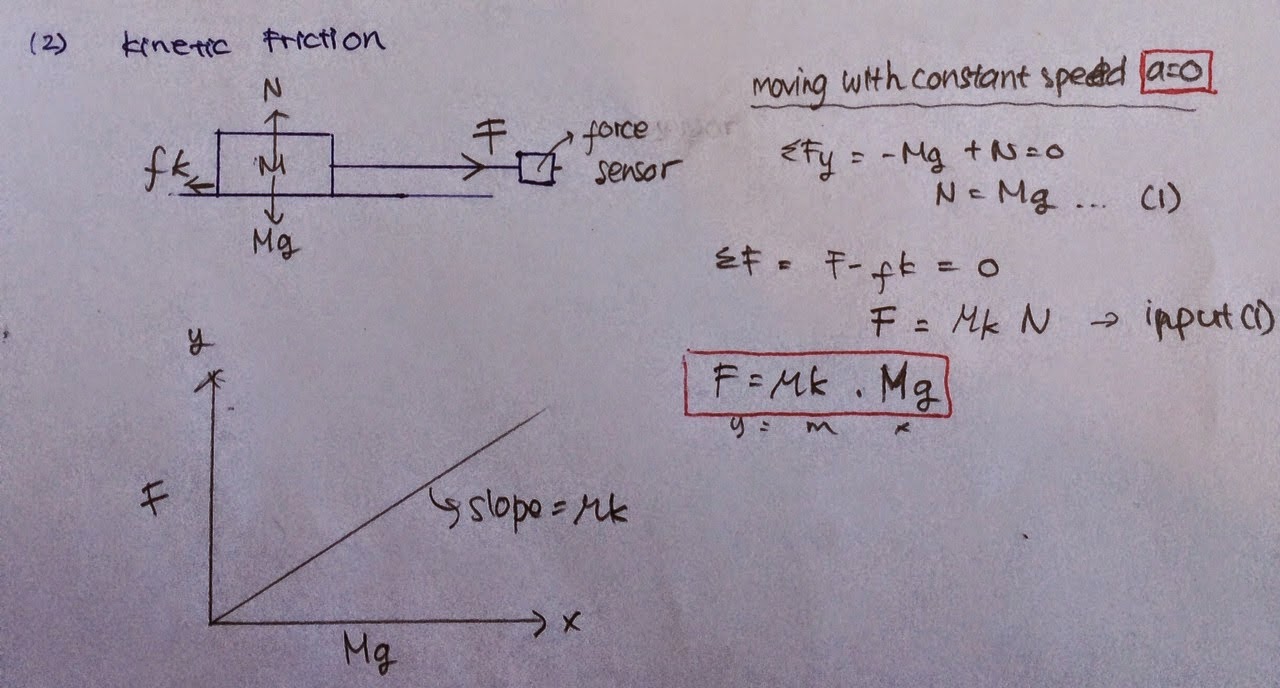 (2) kinetic friction
N
M
fk
Mg
F
force
sensor
moving with constant speed a=0
ΣFy = -Mg + N = 0
N = Mg ... (1)
ΣF = F - fk = 0
F = μk N → input (1)
F = μk . Mg
y = m x
y
F
slope = μk
x
Mg